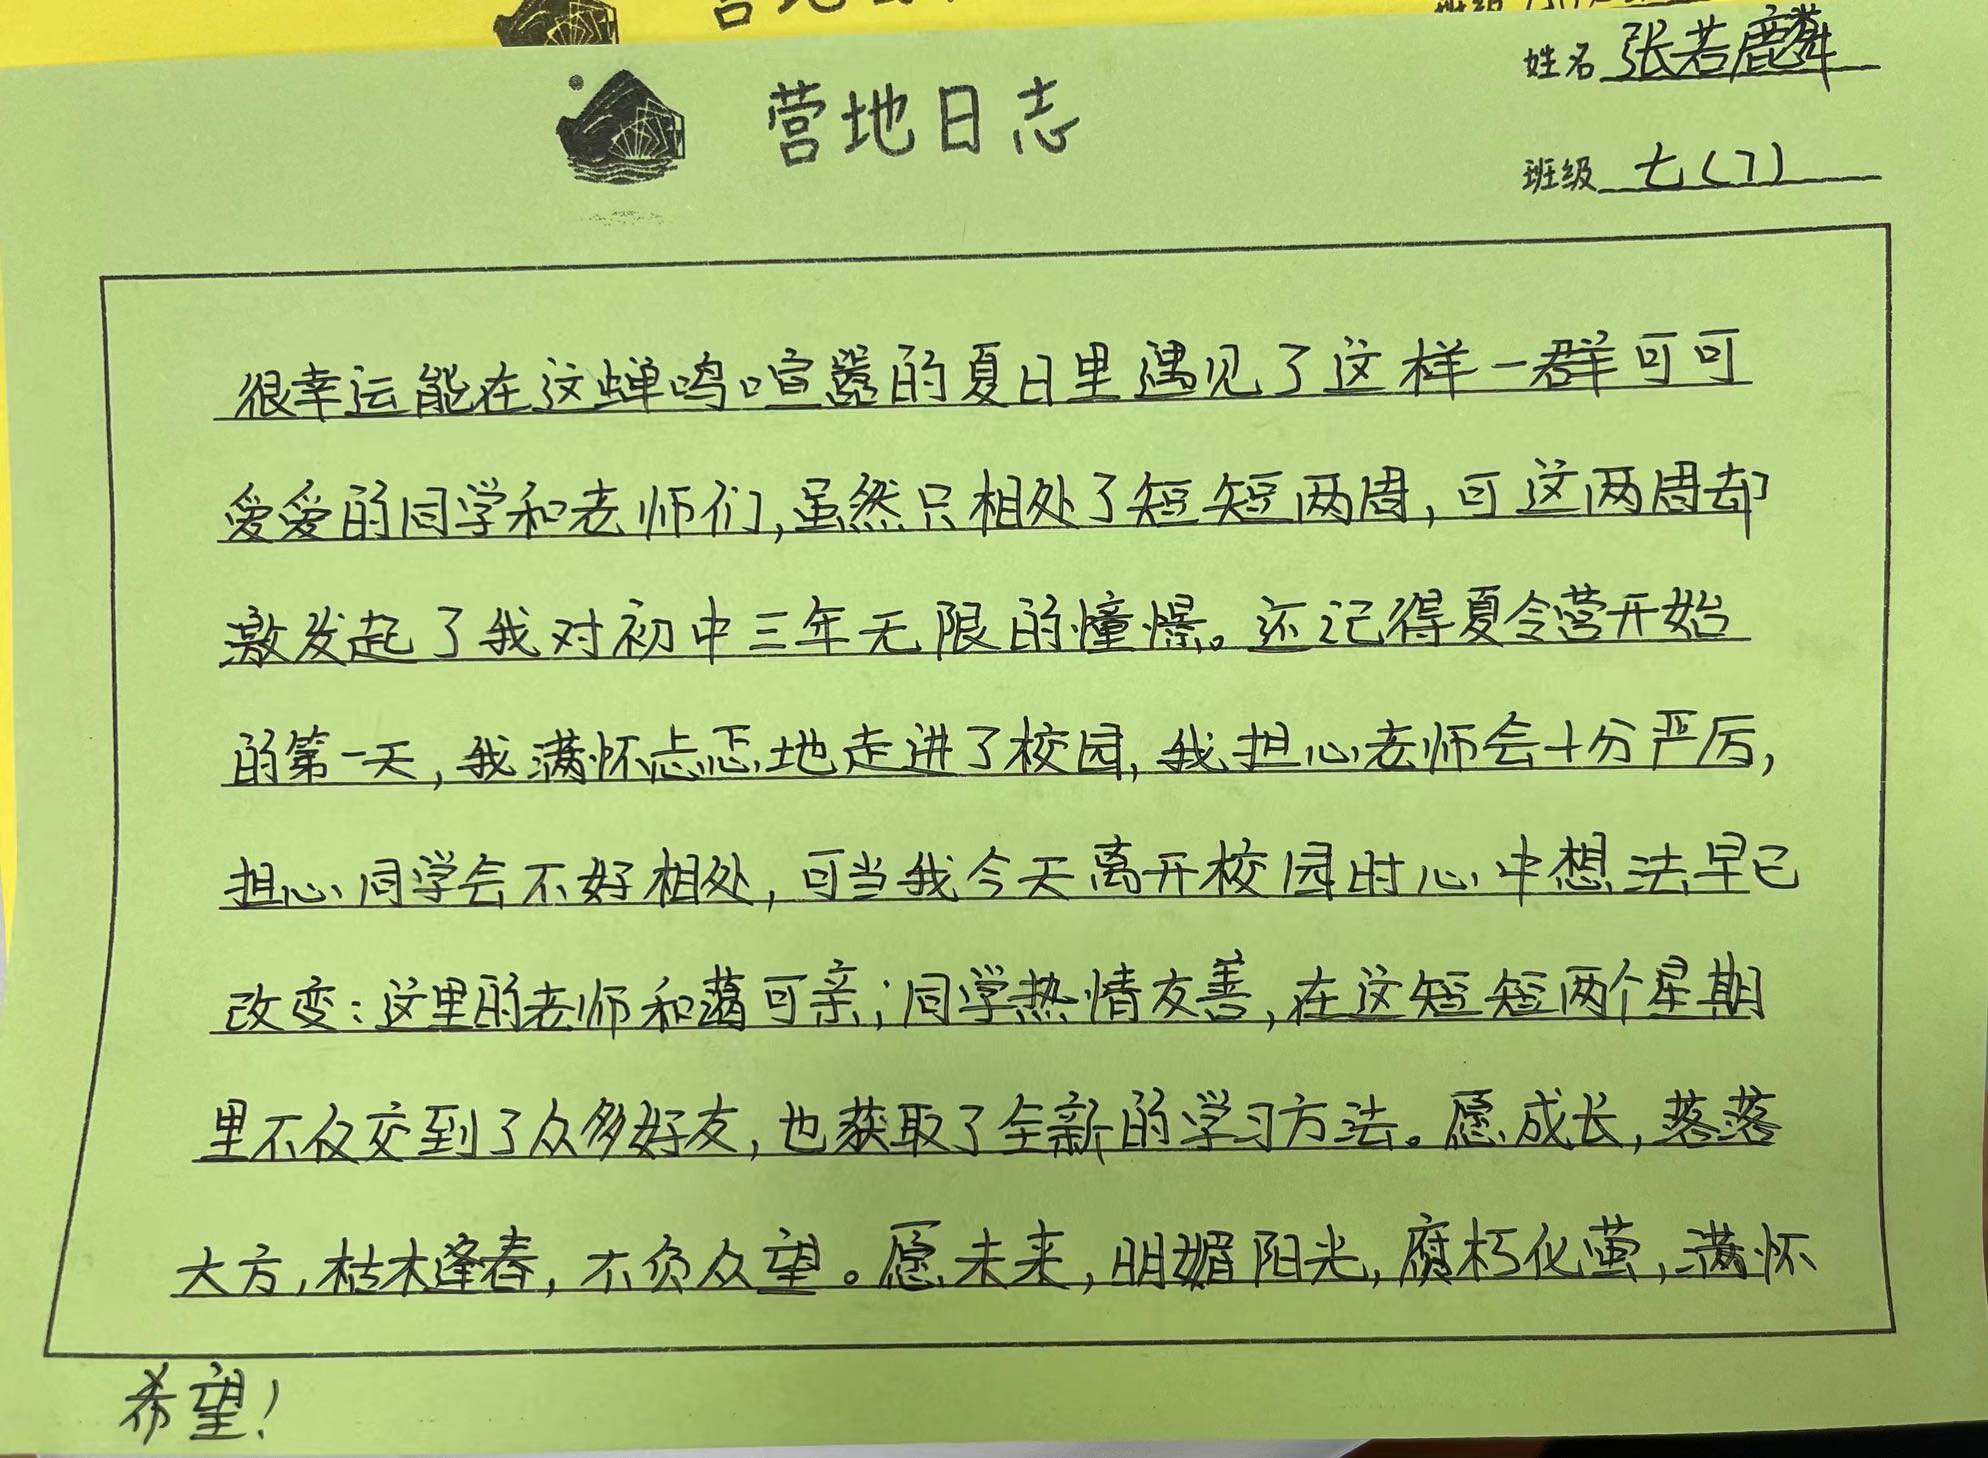 营地日志
姓名 张若麟
班级 七(7)
很幸运能在这蝉鸣喧嚣的夏日里遇见了这样一群可可
爱爱的同学和老师们,虽然只相处了短短两周,可这两周却
激发起了我对初中三年无限的憧憬。还记得夏令营开始
的第一天,我满怀忐忑地走进了校园,我担心老师会十分严厉,
担心同学会不好相处,可当我今天离开校园时心中想法早已
改变:这里的老师和蔼可亲;同学热情友善,在这短短两个星期
里不仅交到了众多好友,也获取了全新的学习方法。愿成长,落落
大方,枯木逢春,不负众望。愿未来,明媚阳光,腐朽化萤,满怀
希望!